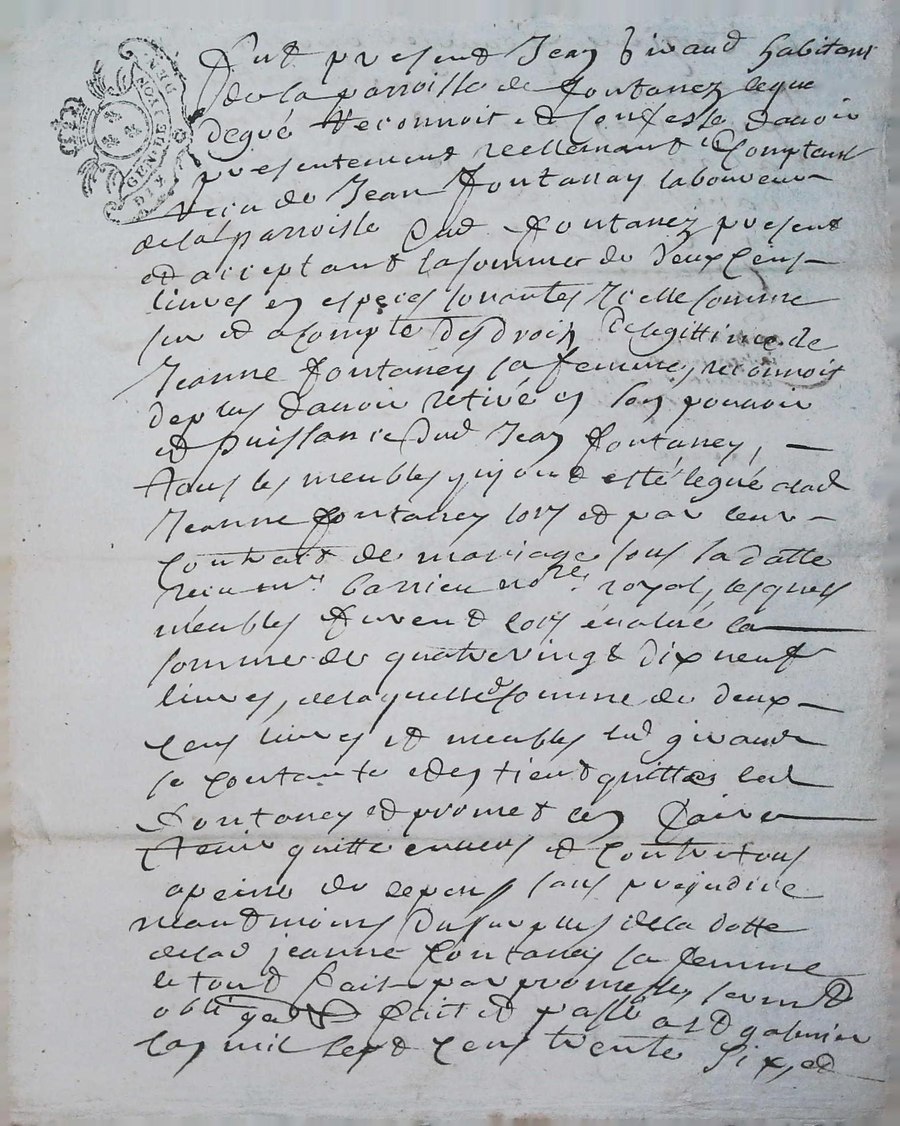 GEN. DE LYON
DIX DEN.
Fut present Jean Giraud habitant
de la parroisse de Fontanez lequel
degré reconnoit et confesse davoir
presentement reellemant et comptant
receu de Jean Fontanay laboureur
de la parroisse dud. Fontanez present
et acceptant la somme de deux cens
livres en especes sonantes icelle somme
sur et acompte des droits de legittime de
Jeanne Fontaney sa femme, reconnoit
deplus davoir retiré en son pouvoir
et puissance dud Jean Fontaney,
tous les meubles qui ont esté legué alad
Jeanne Fontaney lors et par leur
contrat de mariage sous la datte
receu mr. Barrieu nore. royal, lesquels
meubles furent lors évalué la
somme de quatrevingt dixneuf
livres, de laquelle somme de deux
cens livres et meubles led giraud
se contante et en tient quitte led
Fontaney et promet en faire
tenir quitte envers et contre tous
apeine de depens sans prejudice
neantmoins du surplus de la dotte
delad jeanne Fontaney sa femme
le tout fait par promesses, serment
obligaon fait et passé a st galmier
lan mil sept cens trente six, et